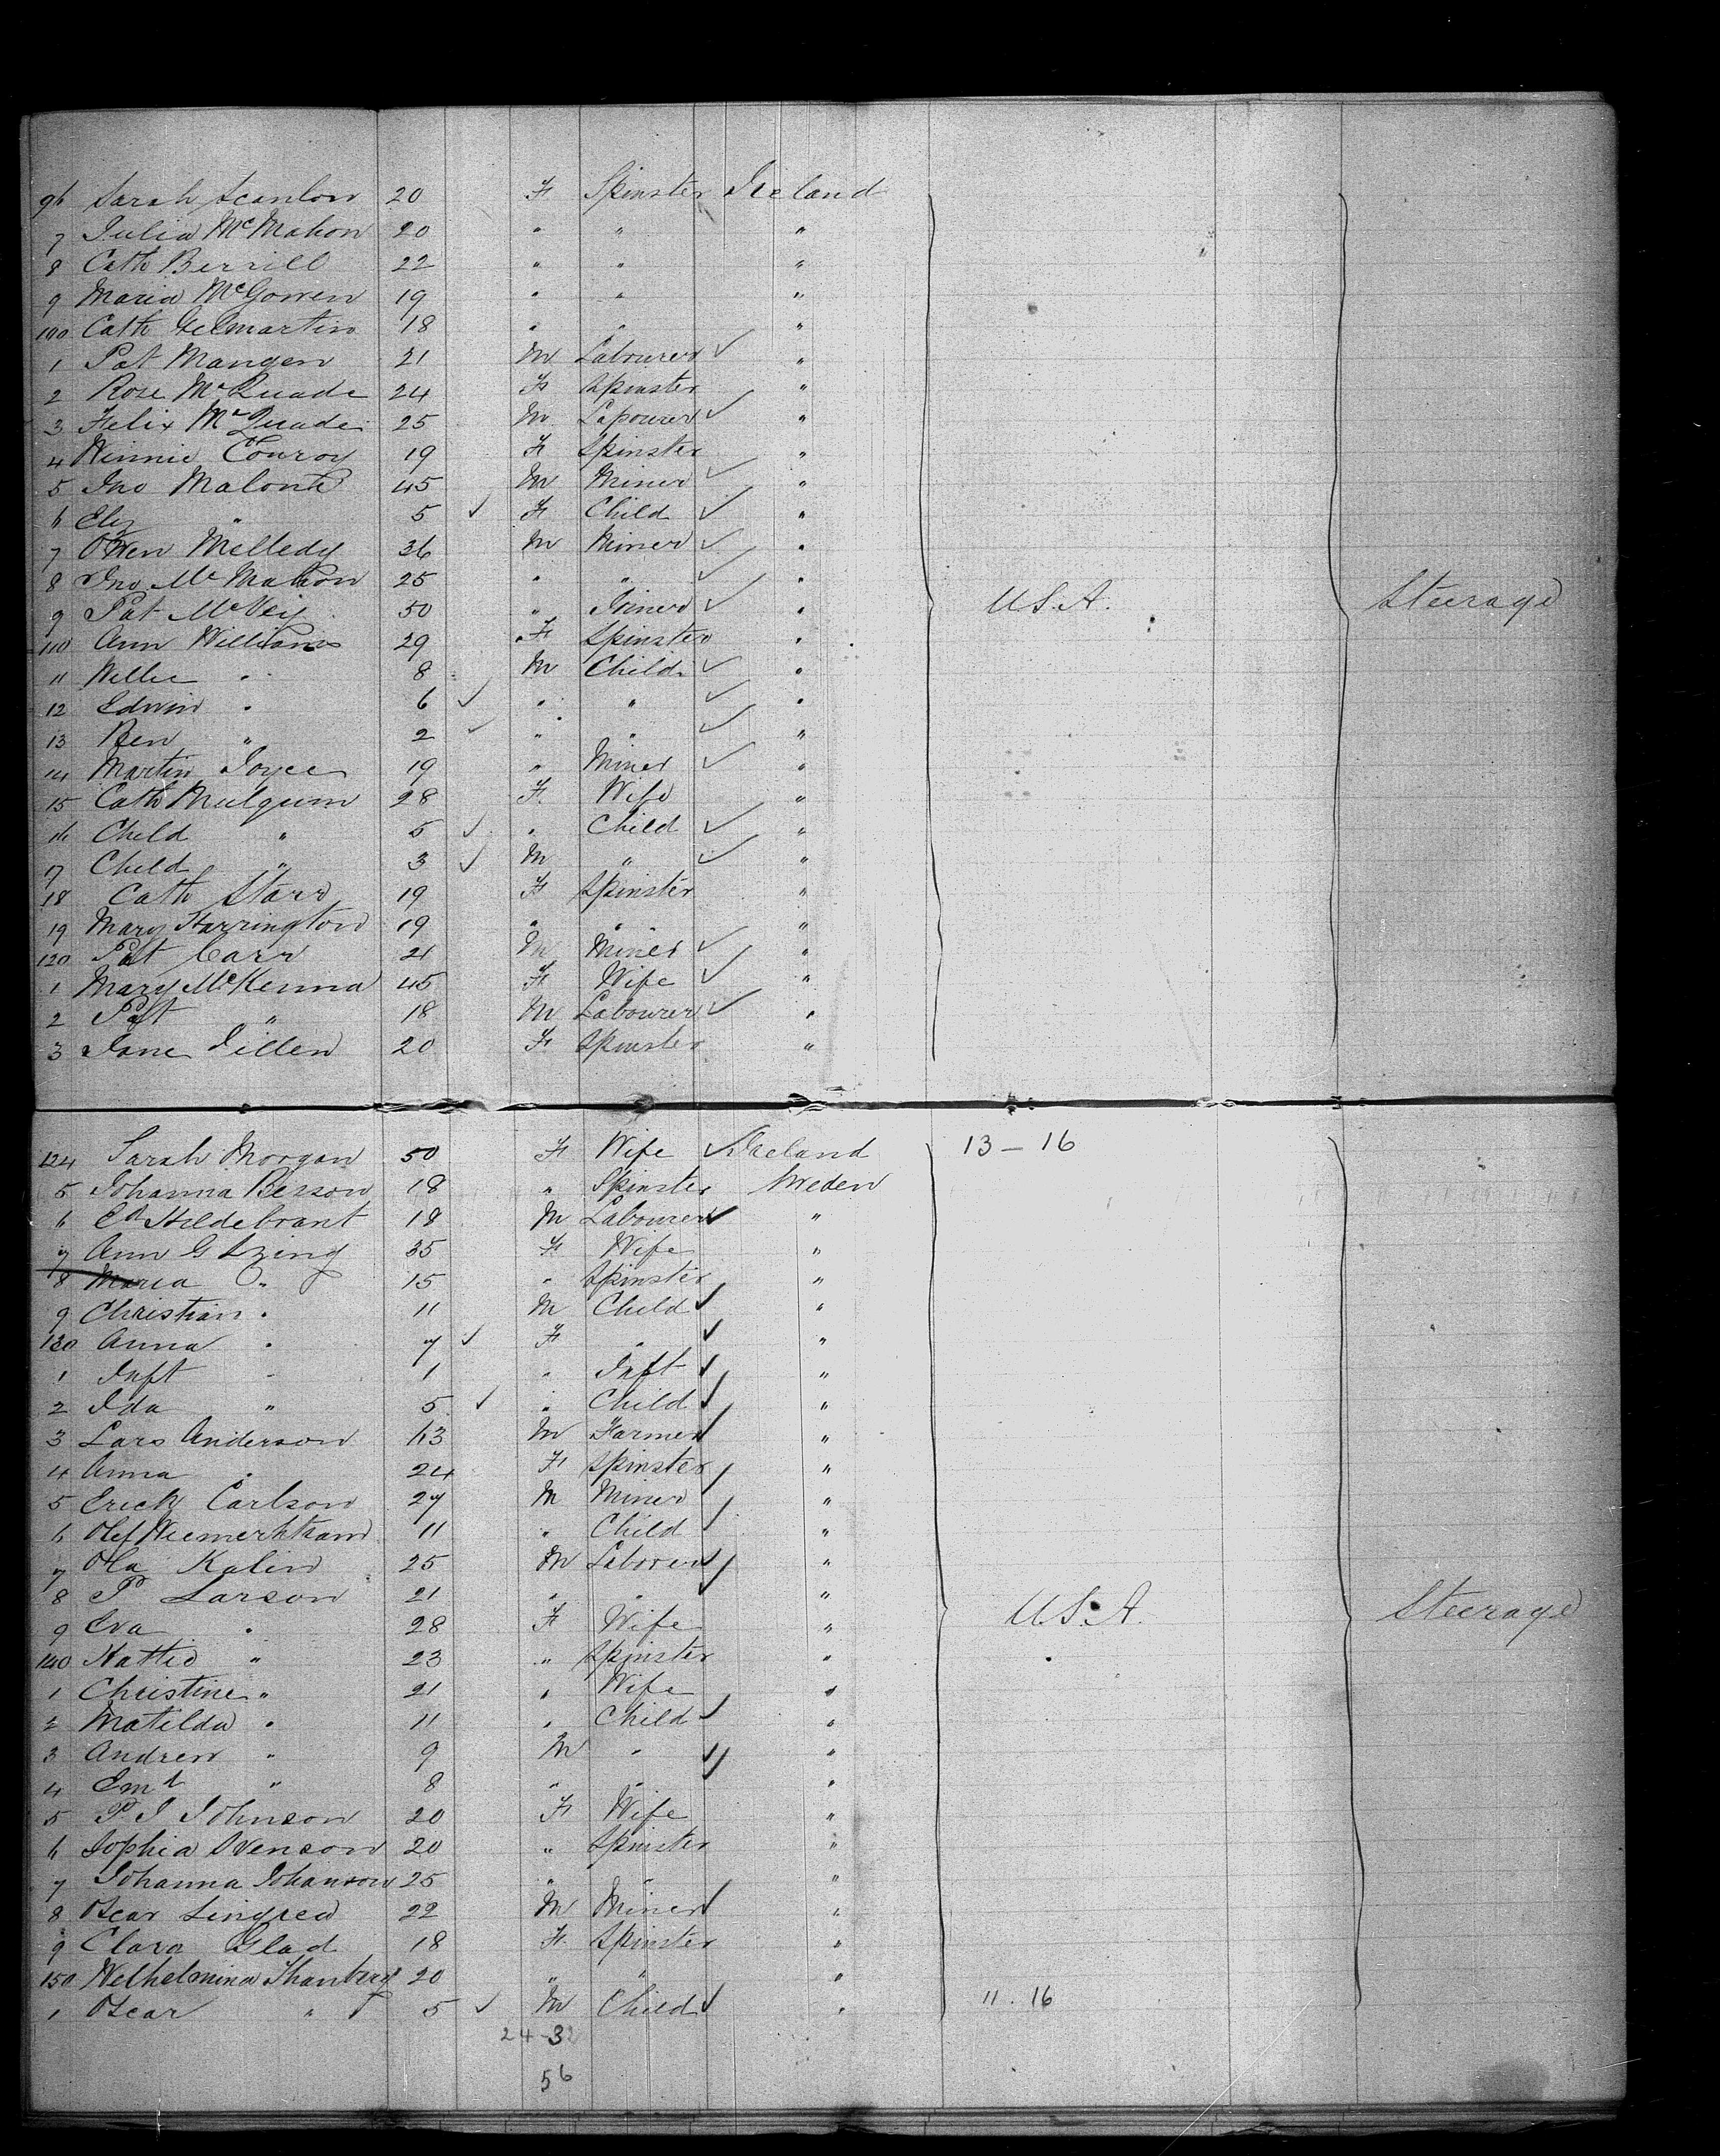 96 Sarah Scanlon 20 F Spinster Ireland
7 Julia McMahon 20 " " "
8 Cath Berrill 22 " " "
9 Maria McGowen 19 " " "
100 Cath Gilmartin 18 " " "
1 Pat Mangen 21 M Labourer ✓ "
2 Rose McQuade 24 F Spinster "
3 Felix McQuade 25 M Labourer ✓ "
4 Winnie Conroy 19 F Spinster "
5 Jno Malone 45 M Miner ✓ "
6 Eliz " 5 ✓ F Child ✓ "
7 Owen Melledy 36 M Miner ✓ "
8 Jno McMahon 25 " " ✓ "
9 Pat McVey 50 " Joiner ✓ " U.S.A. Steerage
110 Ann Williams 29 F Spinster "
11 Willie " 8 M Child ✓ "
12 Edwin " 6 ✓ " " ✓ "
13 Ben " 2 ✓ " " ✓ "
14 Martin Joyce 19 " Miner ✓ "
15 Cath Mulquim 28 F Wife "
16 Child " 5 ✓ " Child ✓ "
17 Child " 3 ✓ M " ✓ "
18 Cath Starr 19 F Spinster "
19 Mary Harrington 19 " " "
120 Pat Carr 21 M Miner ✓ "
1 Mary McKenna 45 F Wife ✓ "
2 Pat " 18 M Labourer ✓ "
3 Jane Dillen 20 F Spinster "
124 Sarah Morgan 50 F Wife ✓ Ireland 13 - 16
5 Johanna Besson 18 " Spinster Sweden
6 Ed Hildebrant 18 M Labourer ✓ "
7 Ann G 35 F Wife "
8 Maria " 15 " Spinster "
9 Christian " 11 M Child ✓ "
130 Anna " 7 ✓ F " ✓ "
1 Inft " 1 " Inft ✓ "
2 Ida " 5 ✓ " Child ✓ "
3 Lars Anderson 63 M Farmer ✓ "
4 Anna " 24 F Spinster "
5 Erick Carlson 27 M Miner ✓ "
6 Olef 11 " Child ✓ "
7 Ola Kalin 25 M Laborer ✓ "
8 P Larson 21 " " ✓ "
9 Eva " 28 F Wife " U.S.A. Steerage
140 Hattie " 23 " Spinster "
1 Christine " 21 " Wife "
2 Matilda " 11 " Child ✓ "
3 Andrew " 9 M " ✓ "
4 Eml " 8 " " ✓ "
5 P. J Johnson 20 F Wife "
6 Sophia Svenson 20 " Spinster "
7 Johanna Johanson 25 " " "
8 Oscar Lingred 22 M Miner ✓ "
9 Clara Glad 18 F Spinster "
150 Welhelmina Thanberg 20 " " "
1 Oscar " 5 ✓ M Child ✓ " 11 . 16
24-32
56